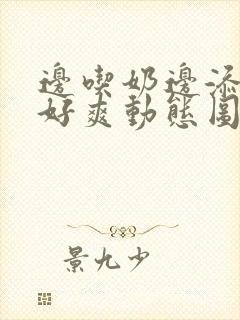 邊喫奶邊添
好爽動態圖
景九少